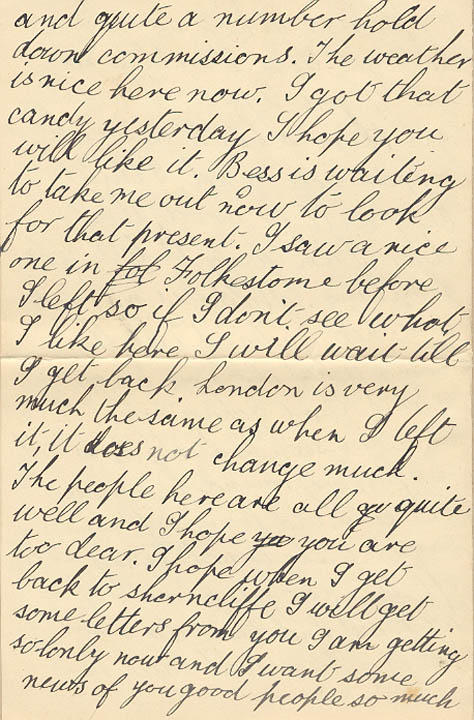 and quite a number hold
down commissions. The weather
is nice here now. I got that
candy yesterday I hope you
will like it. Bess is waiting
to take me out now to look
for that present. I saw a nice
one in fol Folkestome before
I left so if I don't see what
I like here I will wait till
I get back London is very
much the same as when I left
it, it does not change much.
The people here are all q quite
well and I hope yo you are
too dear. I hope when I get
back to shorncliffe I will get
some letters from you I am getting
so lonly now and I want some
news of you good people so much